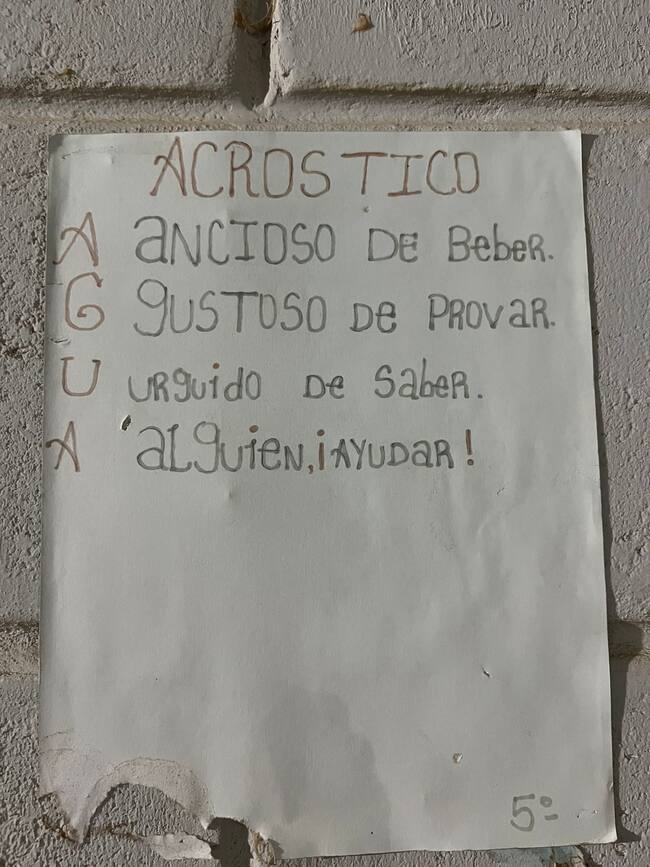 ACROSTICO
A ANCIOSO DE BEBER.
G GUSTOSO DE PROVAR.
U URGUIDO DE SABER.
A ALGUIEN, ¡AYUDAR!
5º